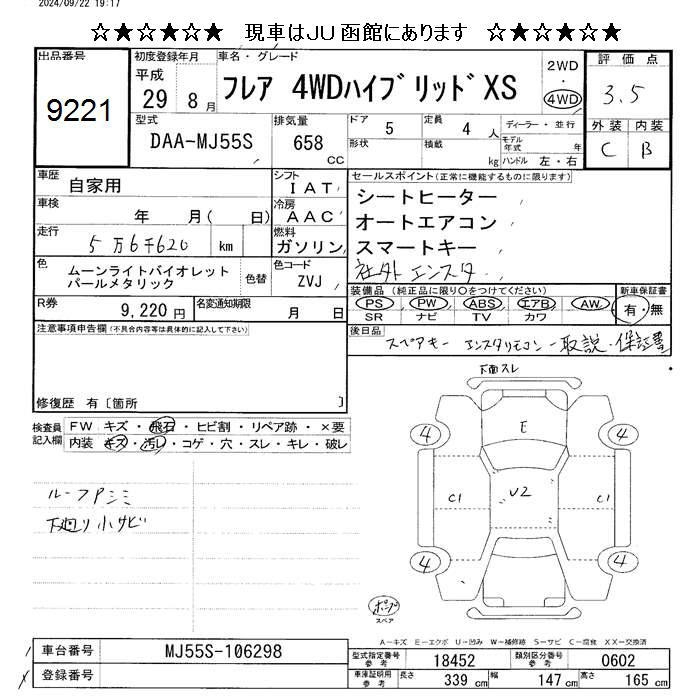 2024/09/22 19:17
☆★☆★☆★ 現車はJU函館にあります ☆★☆★☆★
出品番号 9221
初度登録年月 平成 29 8月
車名・グレード フレア 4WDハイブリッド XS
2WD・4WD
評価点 3.5
外装 C 内装 B
型式 DAA-MJ55S
排気量 658 CC
ドア 5 定員 4 人 ディーラー・並行
形状 積載 kg モデル年式 年 ハンドル 左・右
車歴 自家用
シフト IAT
車検 年 月( 日)
冷房 AAC
走行 5万6千620 km
燃料 ガソリン
色 ムーンライトバイオレットパールメタリック 色替
色コード ZVJ
R券 9,220円 名変通知期限 月 日
セールスポイント(正常に機能するものに限ります)
シートヒーター
オートエアコン
スマートキー
社外エンスタ
装備品(純正品に限り○をつけてください)
PS PW ABS エアB AW
SR ナビ TV カワ
新車保証書 有・無
後日品 スペアキー エンスタリモコン 取説・保証書
注意事項申告欄(不具合内容等は具体的に記入して下さい)
修復歴 有〔箇所 〕
検査員記入欄
FW キズ・飛石・ヒビ割・リペア跡・×要
内装 キズ・汚レ・コゲ・穴・スレ・キレ・破レ
ルーフPシミ
下廻り小サビ
下面スレ
4 E 4
C1 U2 C1
4 4
ポンプ
スペア
A-キズ E-エクボ U-凹み W-補修跡 S-サビ C-腐食 XX-交換済
車台番号 MJ55S-106298
登録番号
型式指定番号 参考 18452 類別区分番号 参考 0602
車庫証明用 参考 長さ 339 cm 幅 147 cm 高さ 165 cm